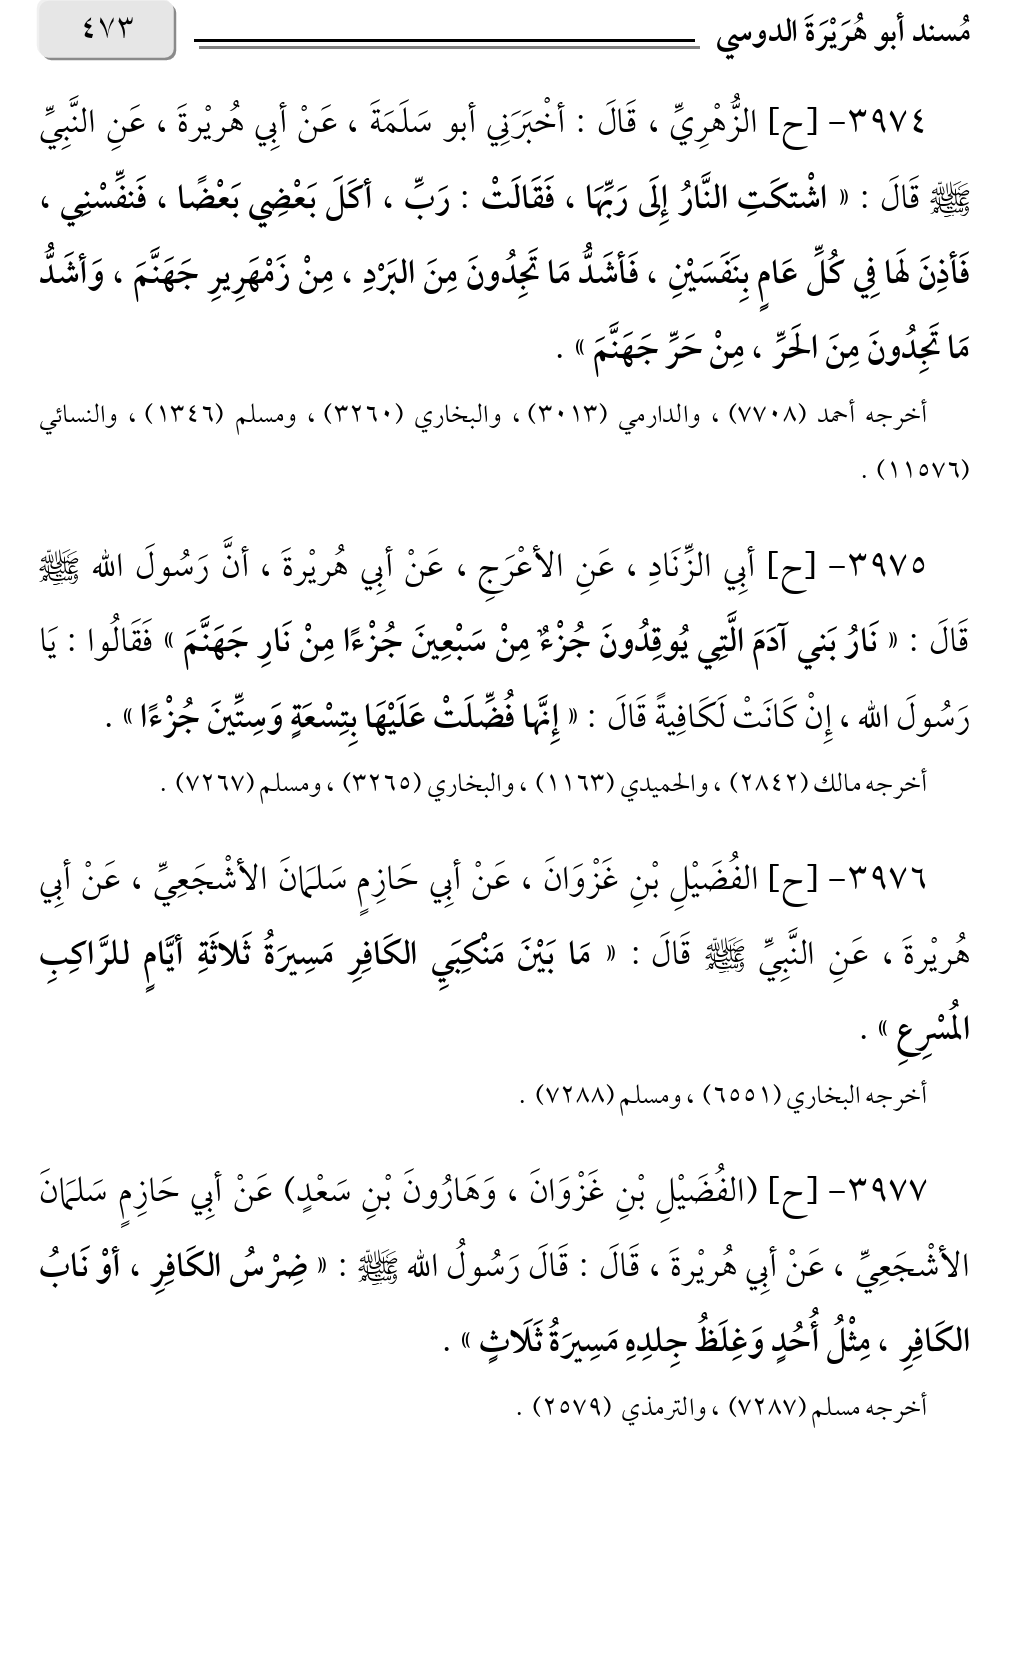 مُسند أبو هُرَيْرَةَ الدوسي ٤٧٣
٣٩٧٤- [ح] الزُّهْرِيِّ ، قَالَ : أخْبَرَنِي أبو سَلَمَةَ ، عَنْ أبِي هُريْرةَ ، عَنِ النَّبِيِّ
ﷺ قَالَ : « اشْتكَتِ النَّارُ إلَى رَبِّهَا ، فَقَالَتْ : رَبِّ ، أكَلَ بَعْضِي بَعْضًا ، فَنفِّسْنِي ،
فَأذِنَ لَها فِي كُلِّ عَامٍ بِنَفَسَيْنِ ، فَأشَدُّ مَا تَجِدُونَ مِنَ البَرْدِ ، مِنْ زَمْهَرِيرِ جَهَنَّمَ ، وَأشَدُّ
مَا تَجِدُونَ مِنَ الحَرِّ ، مِنْ حَرِّ جَهَنَّمَ » .
أخرجه أحمد (٧٧٠٨) ، والدارمي (٣٠١٣) ، والبخاري (٣٢٦٠) ، ومسلم (١٣٤٦) ، والنسائي
(١١٥٧٦) .
٣٩٧٥- [ح] أبِي الزِّنَادِ ، عَنِ الأعْرَجِ ، عَنْ أبِي هُريْرةَ ، أنَّ رَسُولَ الله ﷺ
قَالَ : « نَارُ بَني آدَمَ الَّتِي يُوقِدُونَ جُزْءٌ مِنْ سَبْعِينَ جُزْءًا مِنْ نَارِ جَهَنَّمَ » فَقَالُوا : يَا
رَسُولَ الله ، إنْ كَانَتْ لَكَافِيةً قَالَ : « إنَّها فُضِّلَتْ عَلَيْهَا بِتِسْعَةٍ وَسِتِّينَ جُزْءًا » .
أخرجه مالك (٢٨٤٢) ، والحميدي (١١٦٣) ، والبخاري (٣٢٦٥) ، ومسلم (٧٢٦٧) .
٣٩٧٦- [ح] الفُضَيْلِ بْنِ غَزْوَانَ ، عَنْ أبِي حَازِمٍ سَلمَانَ الأشْجَعِيِّ ، عَنْ أبِي
هُريْرةَ ، عَنِ النَّبِيِّ ﷺ قَالَ : « مَا بَيْنَ مَنْكِبَيِ الكَافِرِ مَسِيرَةُ ثَلاثَةِ أيَّامٍ للرَّاكِبِ
المُسْرِعِ » .
أخرجه البخاري (٦٥٥١) ، ومسلم (٧٢٨٨) .
٣٩٧٧- [ح] (الفُضَيْلِ بْنِ غَزْوَانَ ، وَهَارُونَ بْنِ سَعْدٍ) عَنْ أبِي حَازِمٍ سَلمَانَ
الأشْجَعِيِّ ، عَنْ أبِي هُريْرةَ ، قَالَ : قَالَ رَسُولُ الله ﷺ : « ضِرْسُ الكَافِرِ ، أوْ نَابُ
الكَافِرِ ، مِثْلُ أُحُدٍ وَغِلَظُ جِلدِهِ مَسِيرَةُ ثَلَاثٍ » .
أخرجه مسلم (٧٢٨٧) ، والترمذي (٢٥٧٩) .